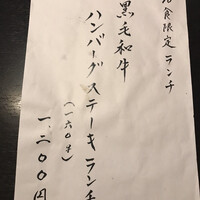 食限定ランチ
黒毛和牛
ハンバーグステーキランチ
(一六〇g)
一、二〇〇円